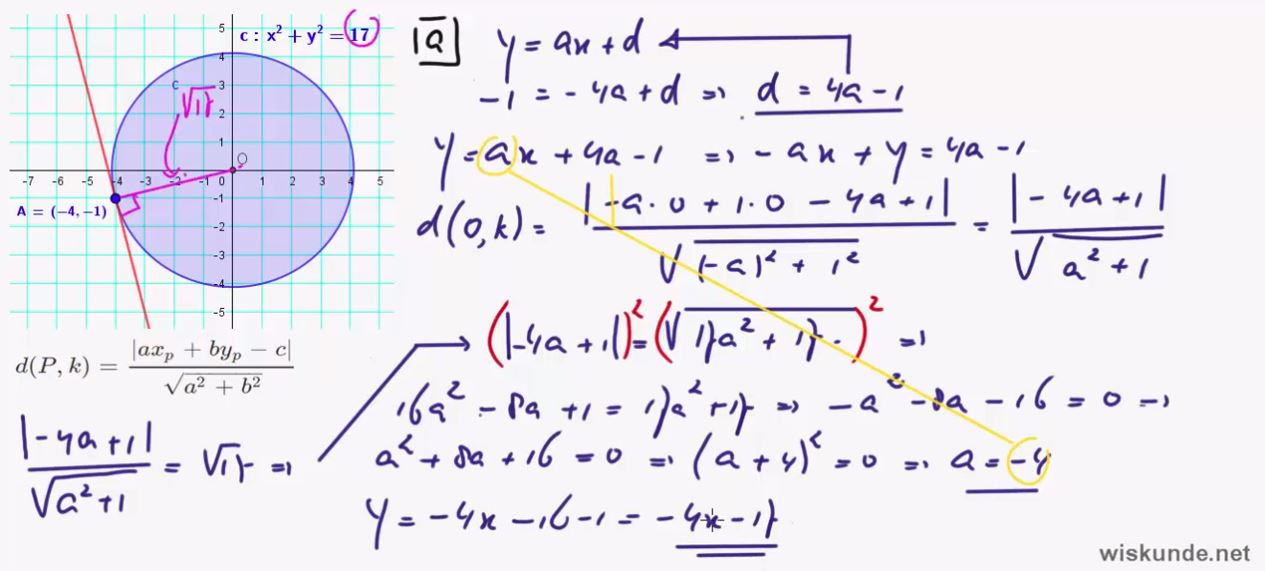 c : x² + y² = 17
C
√17
O
A = (-4,-1)
-7 -6 -5 -4 -3 -2 -1 0 1 2 3 4 5
5
4
3
2
1
-1
-2
-3
-4
-5
d(P, k) = |ax_p + by_p − c| / √(a² + b²)
|-4a+1| / √(a²+1) = √17 ⇒
a
y = ax + d
-1 = -4a + d ⇒ d = 4a - 1
y = ax + 4a - 1 ⇒ -ax + y = 4a - 1
d(O,k) = |-a·0 + 1·0 - 4a + 1| / √((-a)² + 1²) = |-4a+1| / √(a²+1)
(|-4a+1|)² = (√(17a² + 17))² ⇒
16a² - 8a + 1 = 17a² + 17 ⇒ -a² - 8a - 16 = 0 ⇒
a² + 8a + 16 = 0 ⇒ (a+4)² = 0 ⇒ a = -4
y = -4x - 16 - 1 = -4x - 17
wiskunde.net